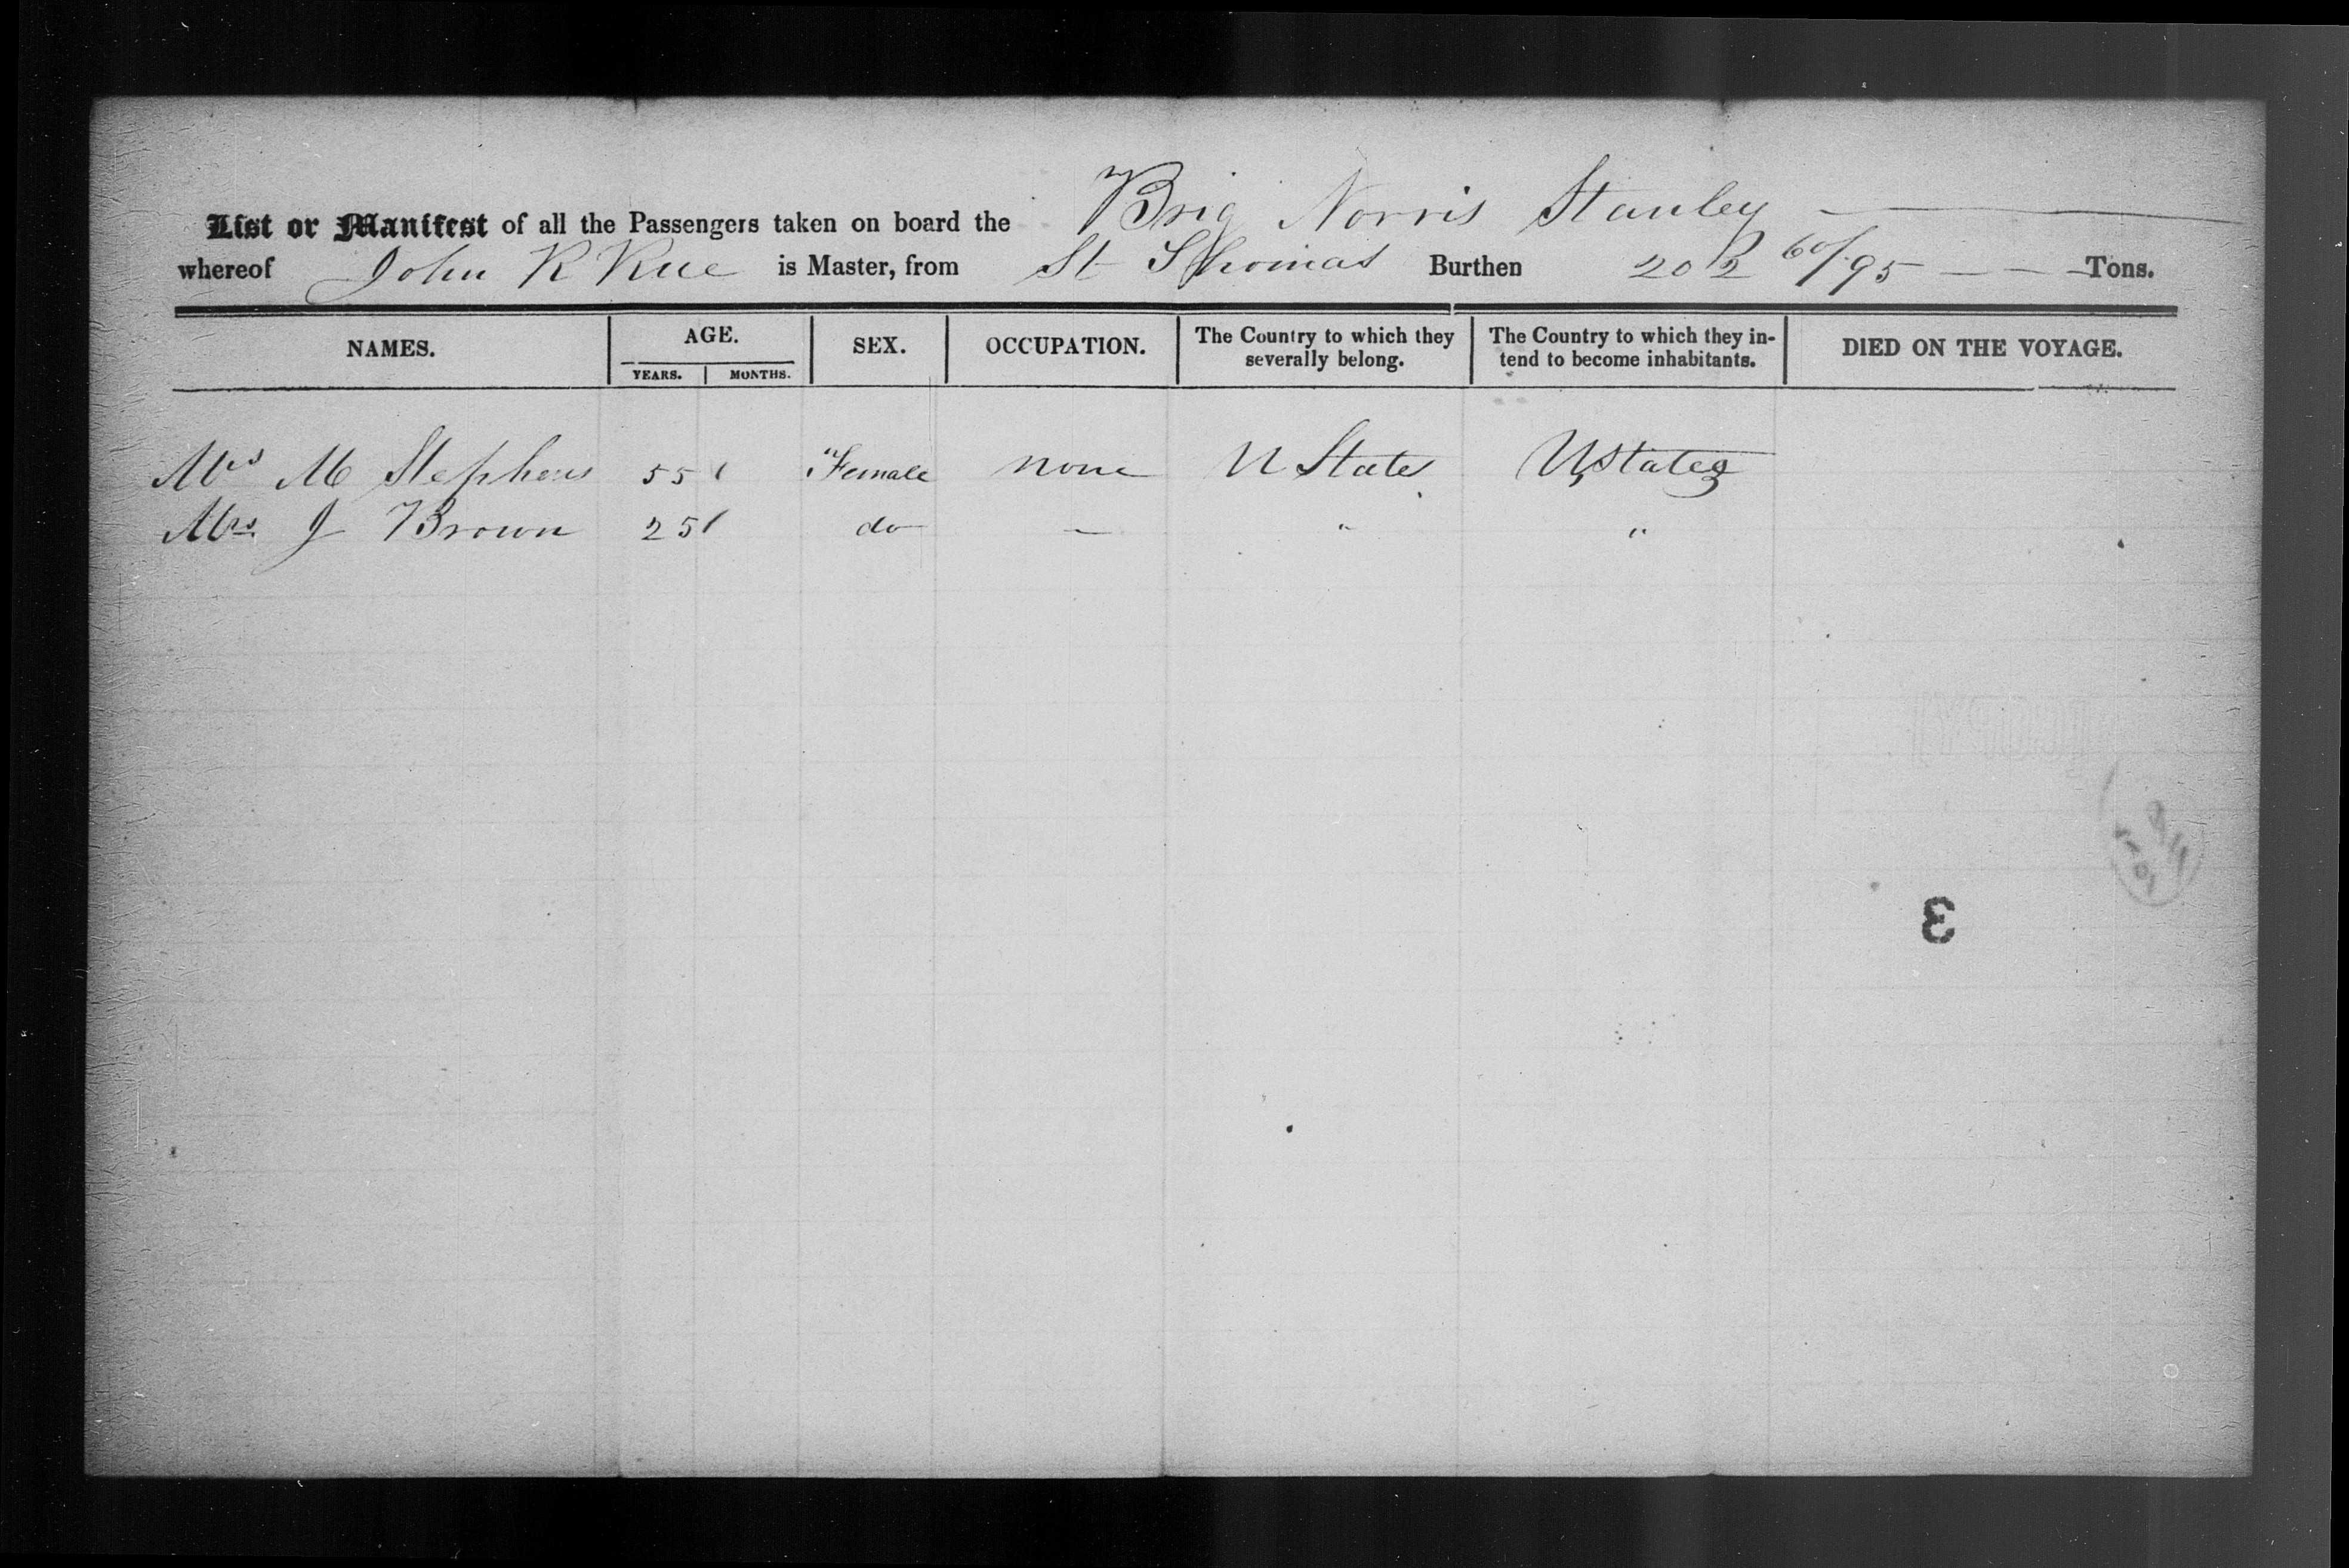 List or Manifest of all the Passengers taken on board the Brig Norris Stanley
whereof John R Rue is Master, from St Thomas Burthen 202 60/95 — — Tons.
NAMES. AGE. SEX. OCCUPATION. The Country to which they severally belong. The Country to which they in-tend to become inhabitants. DIED ON THE VOYAGE.
YEARS. MONTHS.
Mrs M Stephens 55 Female none U States U States
Mrs J Brown 25 do — " "
3